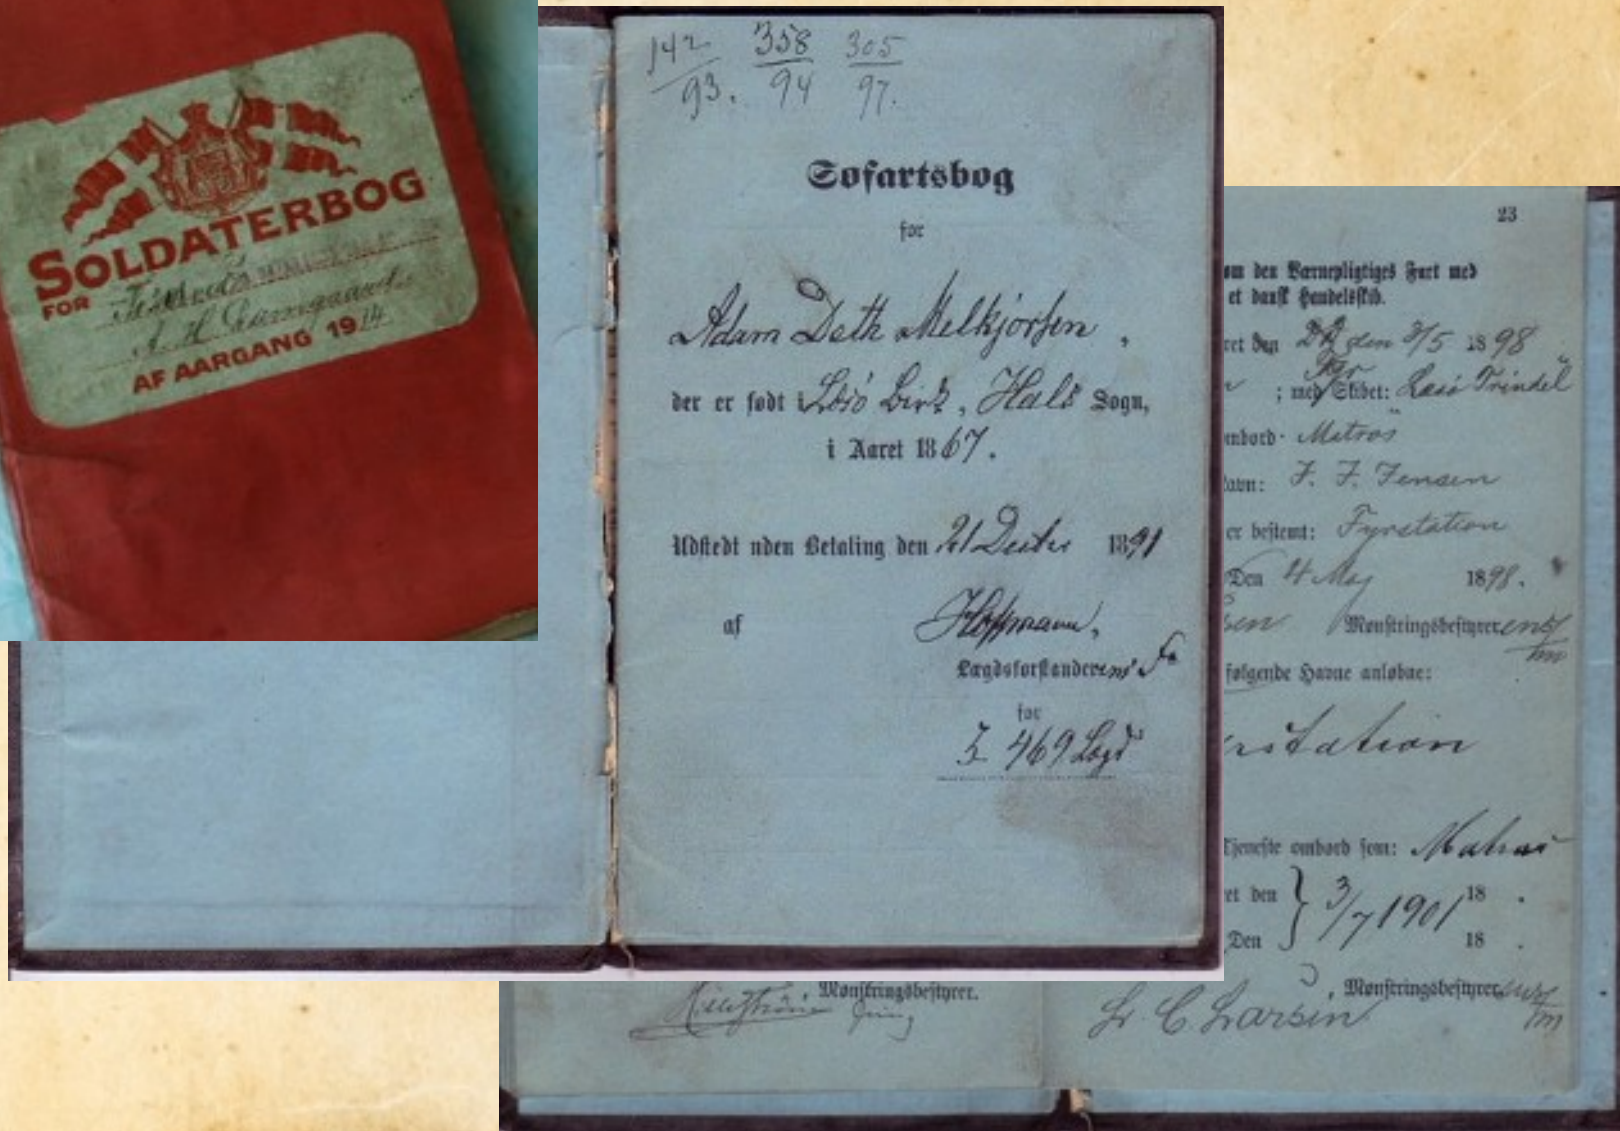 SOLDATERBOG
FOR
A. H. Damgaard
AF AARGANG 1914
142/93. 358/94 305/97.
Søfartsbog
for
Adam Deth Melkjorsen,
der er født i Læsø Birk, Hals Sogn,
i Aaret 1867.
Udstedt uden Betaling den 21 Decbr 1891
af Hoffmann,
Lægdsforstanderens F
for
469 Lægd
23
om den Værnepligtiges Fart med
et dansk Handelsskib.
ret den den 3/5 1898
; med Skibet: Læsö Trindel
mbord Matros
Navn: F. F. Jensen
er bestemt: Fyrstation
Den 4 Maj 1898.
sen Mønstringsbestyrer
følgende Havne anløbne:
rstation
Tjeneste ombord som: Matros
et den } 3/7 1901 18 .
Den 18 .
Mønstringsbestyrer.
Mønstringsbestyrer
L. C. Larsen